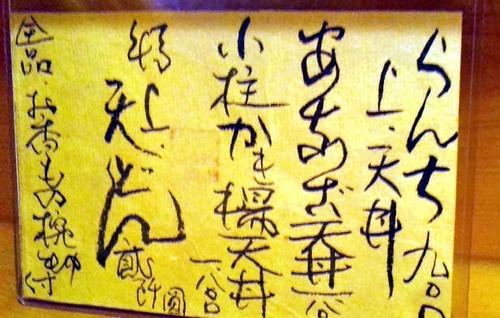 らんち 九〇〇
上・天丼
あなご天丼 一八〇〇
小柱かき揚天丼 一八〇〇
特上・天どん 貳阡圓
全品・お香もの椀物付